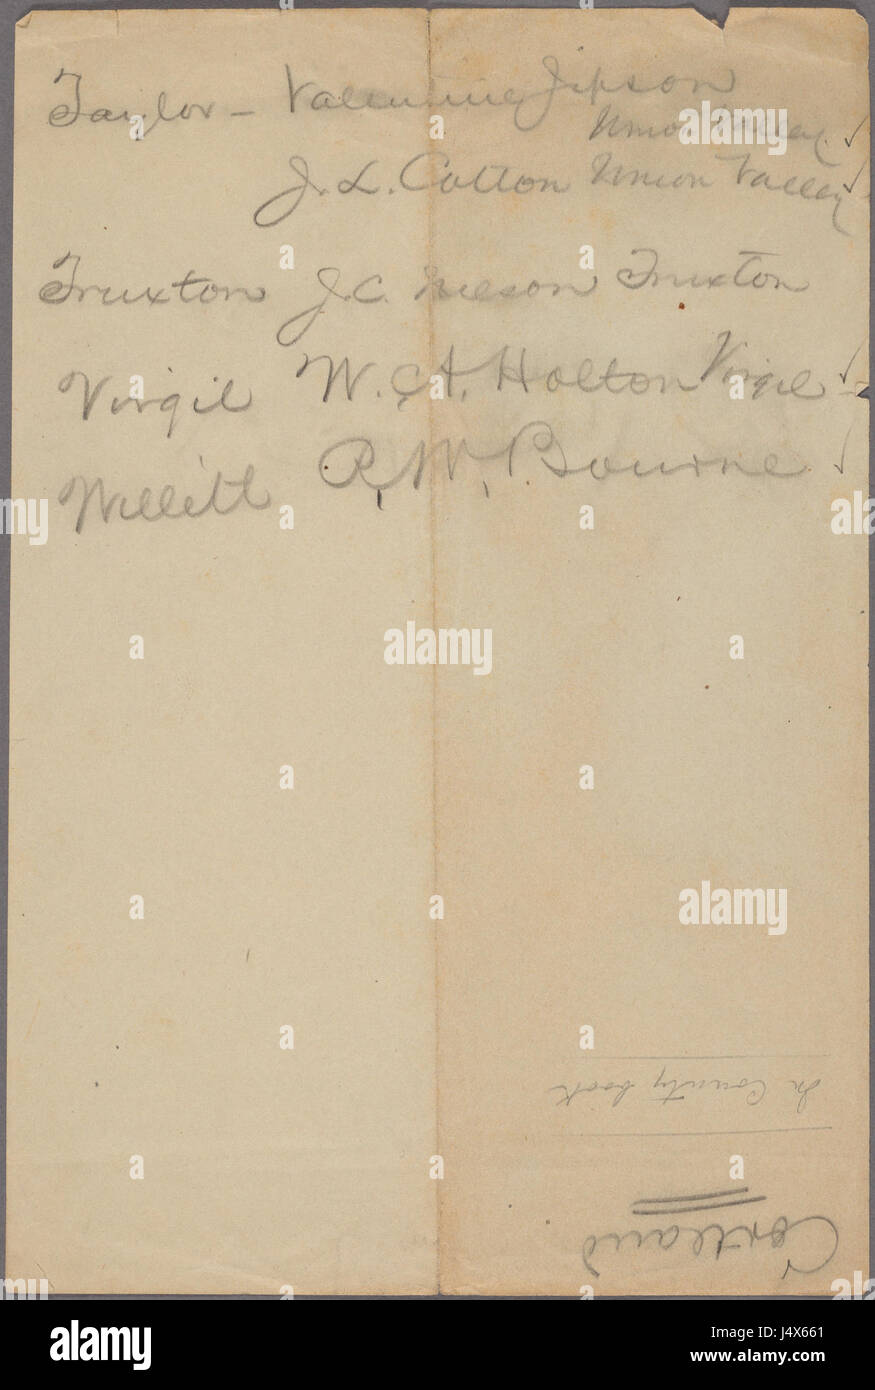 Taylor - Valentine Jipson
Union Valley
J. L. Cotton Union Valley
Truxton J. C. Truxton
Virgil W. A. Holton Virgil
Willett R. W. Bourne
In County book
Cortland
a alamy stock photo
alamy
Image ID: J4X661
www.alamy.com